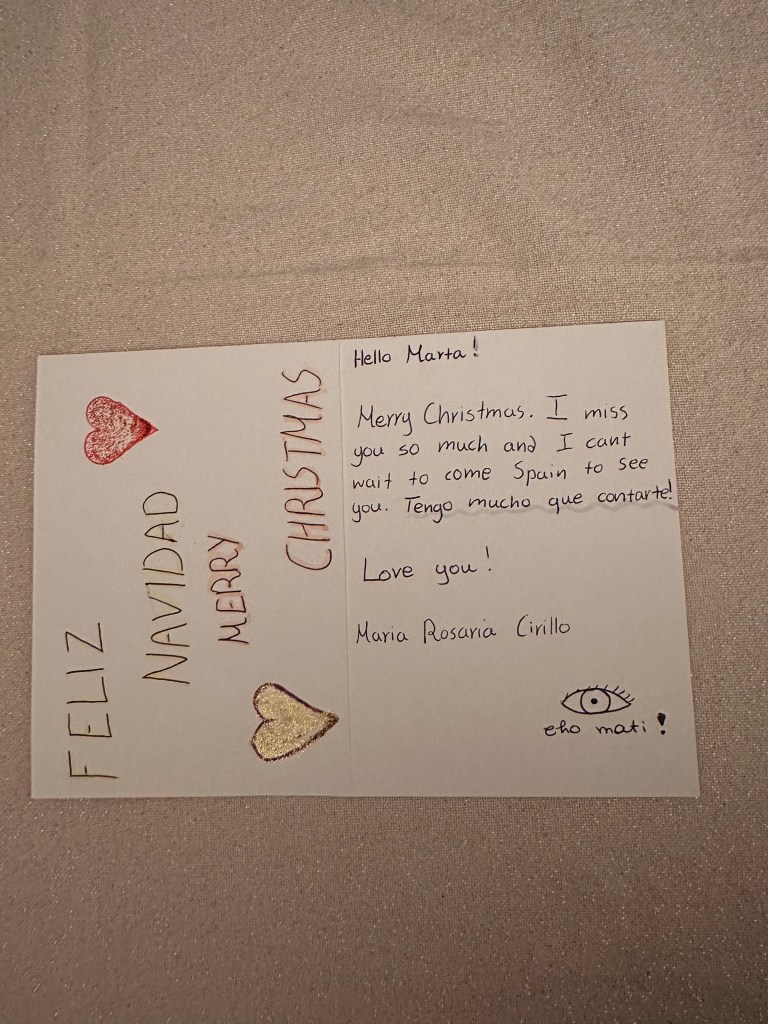 FELIZ
NAVIDAD
MERRY
CHRISTMAS
Hello Marta!
Merry Christmas. I miss
you so much and I cant
wait to come Spain to see
you. Tengo mucho que contarte!
Love you!
Maria Rosaria Cirillo
eho mati!